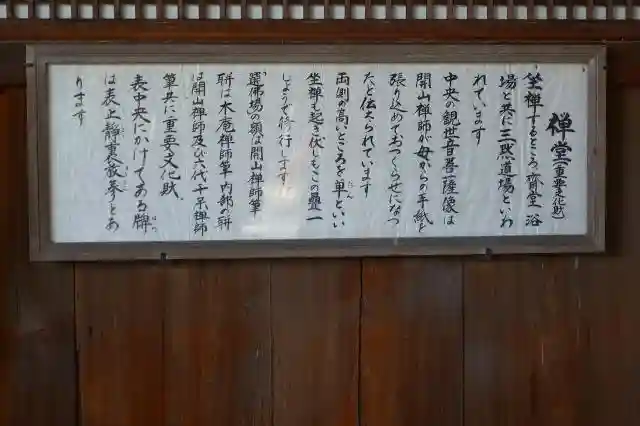 禅堂(重要文化財)
坐禅するところ 斎堂、浴
場と共に三黙道場といわ
れています
中央の観世音菩薩像は
開山禅師が母からの手紙を
張り込めておつくらせになっ
たと伝えられています
両側が高いところを単といい
坐禅も起き伏しもこの畳一
じょうで修行します
「選佛場」の額は開山禅師筆
聯は木庵禅師筆 内部の聯
は開山禅師及び六代千呆禅師
筆共に重要文化財、
表中央にかけてある牌
は表止静裏放参とあ
ります